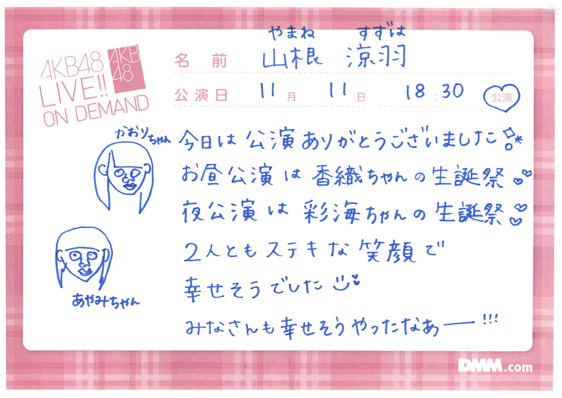 AKB48
LIVE!!
ON DEMAND
AKB
48
やまね すずは
名前 山根 涼羽
公演日 11月 11日 18:30 公演
かおりちゃん
今日は公演ありがとうございました
お昼公演は香織ちゃんの生誕祭
夜公演は彩海ちゃんの生誕祭
2人ともステキな笑顔で
幸せそうでした
あやみちゃん
みなさんも幸せそうやったなあー!!!
DMM.com